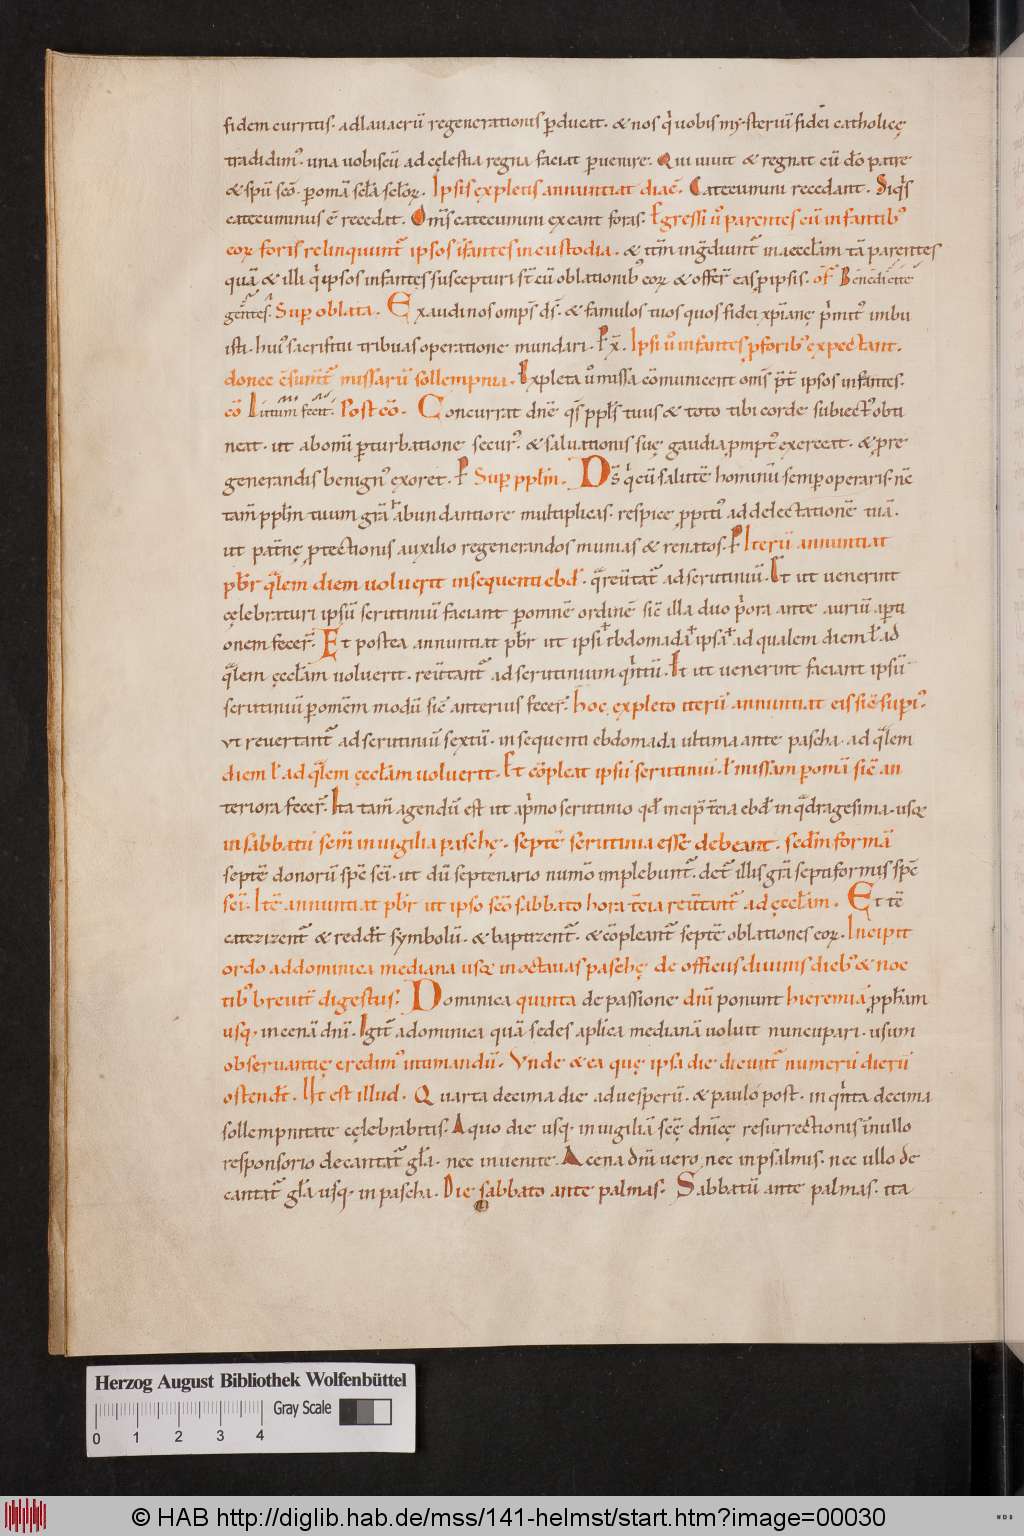 fidem curritis. ad lauacrū regenerationis ꝑducat. & nos q̇ uobis mysteriū fidei catholicę
tradidim᷒. una uobiscū ad cęlestia regna faciat ꝑuenire. Qui uiuit & regnat cū dō patre
& spū scō. ꝑ omā sclā sclorꝝ. Ipsis expletis annuntiat diac̄. Catecumini recedant. Siq̇s
catecuminus ē recedat. Om̄s catecumini exeant foras. Egressi ū parentes cū infantib᷒
eorꝝ foris relinquunt᷒ ipsos īfantes in custodia. & itm̄ ingdiunt᷒ in aeccl̄am tā parentes
quā & illi q̇ ipsos infantes suscepturi st̄ cū oblationib᷒ eorꝝ & offer̄ eas ꝓ ipsis. of̄ Benedicite
gentes. Suꝑ oblata. Exaudi nos omps̄ ds̄. & famulos tuos quos fidei xp̄ianę p̄mit᷒ imbu
isti. hui᷒ sacrificii tribuas operatione mundari. P̄ x̄. Ipsi ū infantes p̄ forib᷒ expectant.
donec c̄sum̄t᷒ missarū sollempnia. Expleta ū missa cōmunicent om̄s p̄t̄ ipsos infantes.
cō Lutum fecit. Post cō. Concurrat dn̄e qs̄ ppl̄s tuus & toto tibi corde subiect᷒ obti
neat. ut ab omī ꝑturbatione secur᷒. & saluationis suę gaudia ꝓmpt᷒ exerceat. & ꝓ re
generandis benign᷒ exoret. P̄ Suꝑ ppl̄m. Ds̄ q̇ cū salutē hominū semꝑ operaris. nc̄
tam̄ ppl̄m tuum gr̄a abundantiore multiplicas. respice ꝓpiti᷒ ad delectationē tuā.
ut pat̄nę ꝓtectionis auxilio regenerandos munias & renatos. P̄ Iterū annuntiat
pb̄r qlem diem uoluerit in sequenti ebd̄. q̄ reūtat᷒ ad scrutiniū. Et ut uenerint
cęlebraturi ipsū scrutiniū faciant ꝑ omnē ordinē sic̄ illa duo p̄ora ante auriū aꝑti
onem fecer̄. Et postea annuntiat pb̄r ut ipsi ebdomada ł ipsa ł ad qualem diem ł ad
qlem ęccl̄am uoluerit. reūtant᷒ ad scrutinium qṅtū. Et ut uenerint faciant ipsū
scrutiniū ꝑ omem modū sic̄ anterius fecer̄. hoc expleto iterū annuntiat eis sic̄ supi᷒.
ut reuertant᷒ ad scrutiniū sextū. in sequenti ebdomada ultima ante pascha. ad qlem
diem ł ad qlem ęccl̄am uoluerit. Et cōpleat ipsū scrutiniū. ł missam ꝑ omā sic̄ an
teriora fecer̄. Ita tam̄ agendū est ut a p̄mo scrutinio qd̄ incip̄ t̄cia ebd̄ in q̄dragesima. usq;
in sabbatū scm̄ in uigilia paschę. septē scrutinia esse debeant. scd̄m formā
septē donorū sp̄c sc̄i. ut dū septenario numō implebunt᷒. det᷒ illis gr̄a septiformis sp̄c
sc̄i. Itē annuntiat pb̄r ut ipso scō sabbato hora t̄cia reūtant᷒ ad ęccl̄am. Et tc̄
catezizent᷒ & redd̄t symbolū. & baptizent᷒. & cōpleant᷒ septē oblationes eorꝝ. Incipit
ordo ad dominica mediana usq; in octauas paschę de officiis diuinis dieb᷒ & noc
tib᷒ breuit̄ digestus. Dominica quinta de passione dn̄i ponunt hieremiā ꝓph̄am
usq; in cenā dn̄i. Igit᷒ a dominica quā sedes apl̄ica medianā uoluit nuncupari. usum
obseruantię credim᷒ intimandū. Vnde & ea quę ipsa die dicunt᷒ numerū dierū
ostend̄t. Ut est illud. Quarta decima die ad uesperū. & paulo post. in qṅta decima
sollempnitate cęlebrabitis. A quo die usq; in uigiliā scę dn̄icę resurrectionis ī nullo
responsorio decantat᷒ gl̄a. nec in uenite. A cena dn̄i uero, nec in psalmis. nec ullo de
cantat᷒ gl̄a usq; in pascha. Die sabbato ante palmas. Sabbatū ante palmas. ita
Herzog August Bibliothek Wolfenbüttel
Gray Scale
0 1 2 3 4
© HAB http://diglib.hab.de/mss/141-helmst/start.htm?image=00030